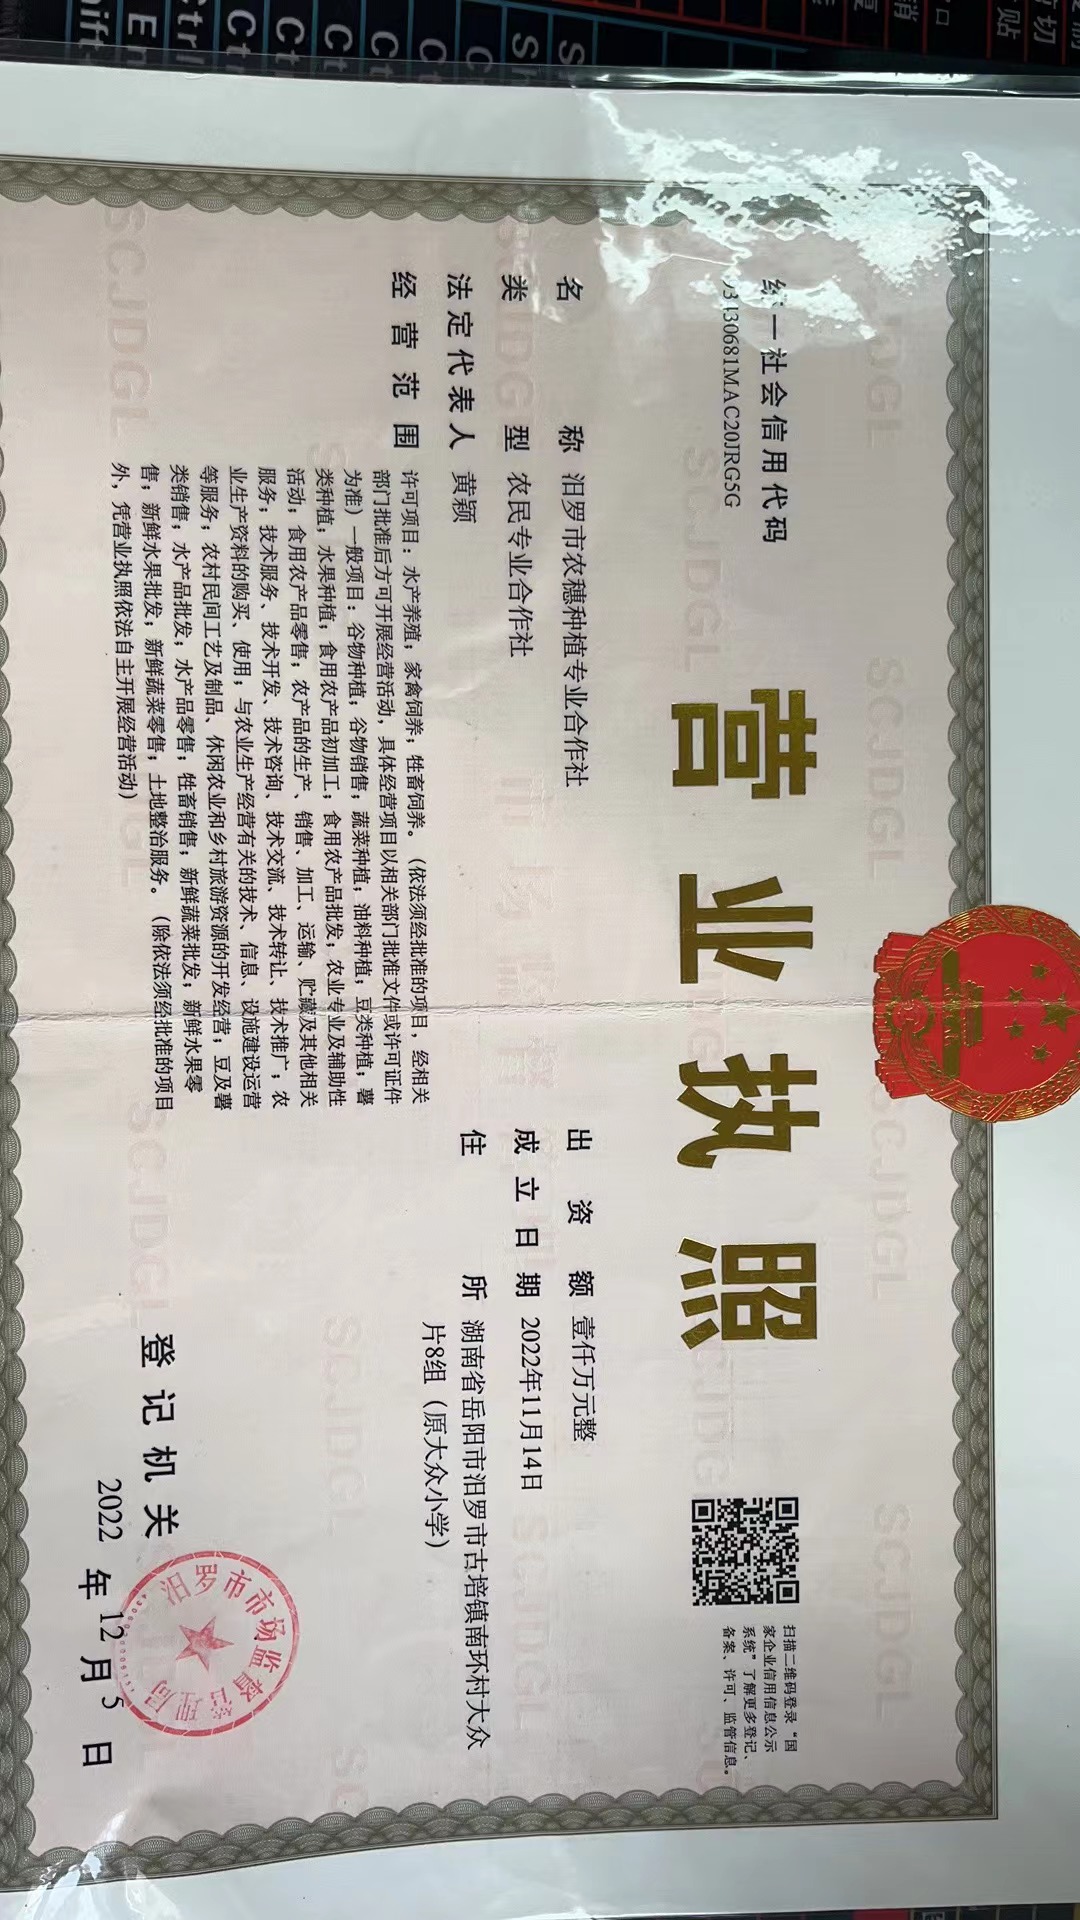 营业执照
统一社会信用代码
430681MAC20JRG5G
扫描二维码登录“国
家企业信用信息公示
系统”了解更多登记、
备案、许可、监管信息。
名称 汨罗市农穗种植专业合作社
类型 农民专业合作社
法定代表人 黄颖
经营范围 许可项目：水产养殖；家禽饲养；牲畜饲养。（依法须经批准的项目，经相关
部门批准后方可开展经营活动，具体经营项目以相关部门批准文件或许可证件
为准）一般项目：谷物种植；谷物销售；蔬菜种植；油料种植；豆类种植；薯
类种植；水果种植；食用农产品初加工；食用农产品批发；农业专业及辅助性
活动；食用农产品零售；农产品的生产、销售、加工、运输、贮藏及其他相关
服务；技术服务、技术开发、技术咨询、技术交流、技术转让、技术推广；农
业生产资料的购买、使用；与农业生产经营有关的技术、信息、设施建设运营
等服务；农村民间工艺及制品、休闲农业和乡村旅游资源的开发经营；豆及薯
类销售；水产品批发；水产品零售；牲畜销售；新鲜蔬菜批发；新鲜水果零
售；新鲜水果批发；新鲜蔬菜零售；土地整治服务。（除依法须经批准的项目
外，凭营业执照依法自主开展经营活动）
出资额 壹仟万元整
成立日期 2022年11月14日
住所 湖南省岳阳市汨罗市古培镇南环村大众
片8组（原大众小学）
登记机关
汨罗市市场监督管理局
2022年12月5日
SCJDGL